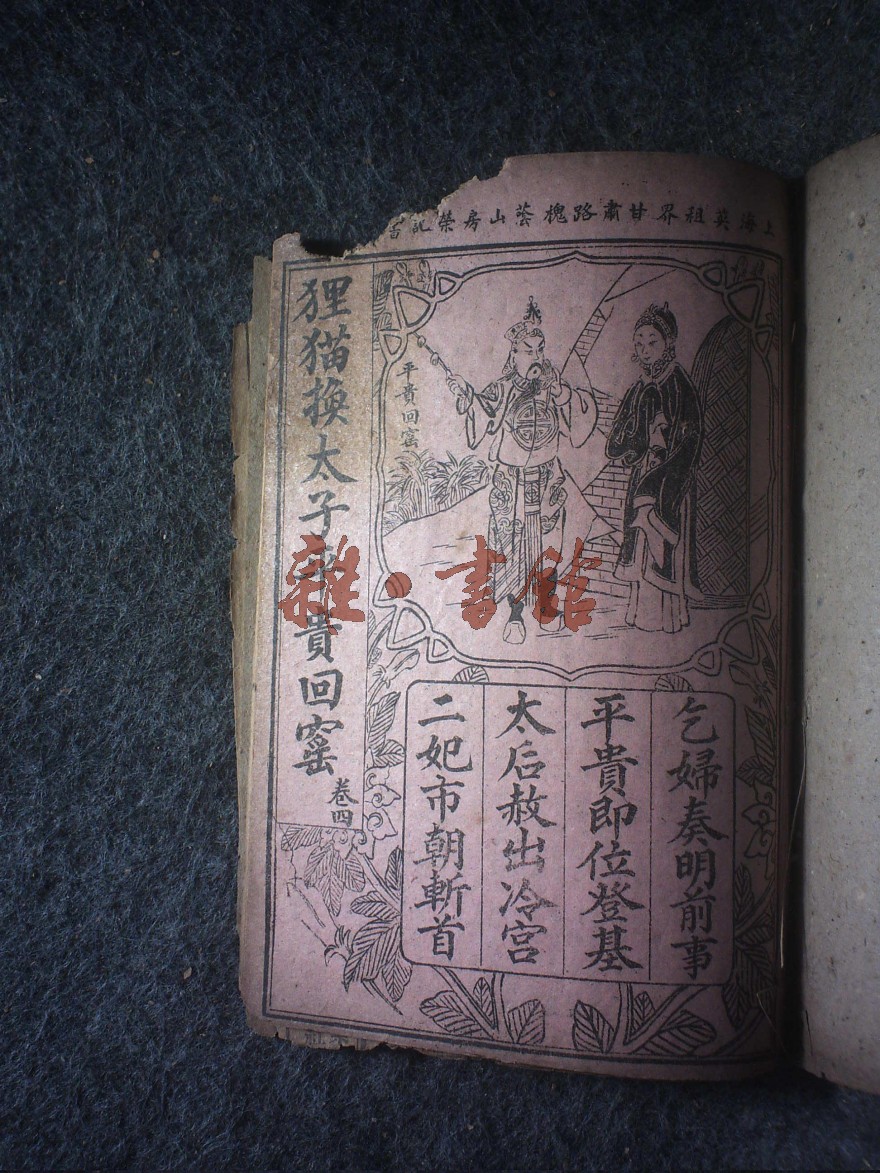 上海英租界甘肅路槐蔭山房榮記
狸猫換太子平貴回窰
卷四
平貴回窰
乞婦奏明前事
平貴即位登基
太后赦出冷宫
二妃市朝斬首
雜·書館